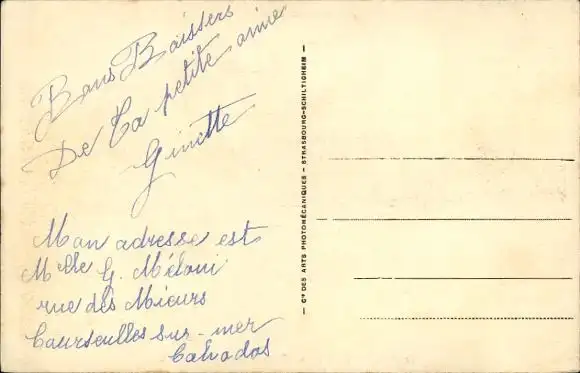 Bons Baissers
De Ta petite amie
Ginette
Mon adresse est
Melle G. Méloni
rue des Mieurs
Courseulles sur-mer
Calvados
Cie DES ARTS PHOTOMÉCANIQUES - STRASBOURG-SCHILTIGHEIM